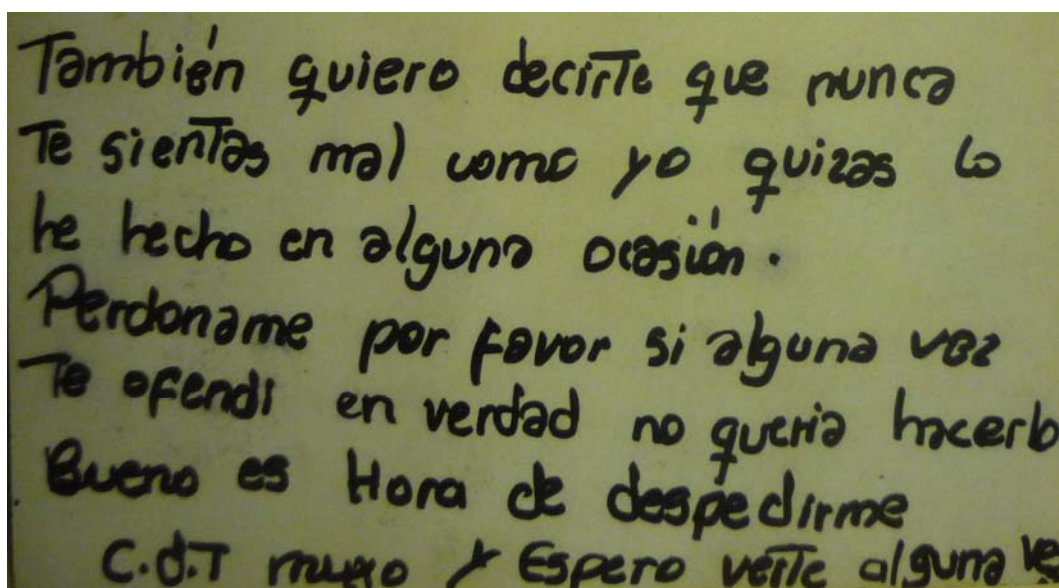 También quiero decirte que nunca
Te sientas mal como yo quizas lo
he hecho en alguna ocasión.
Perdoname por favor si alguna vez
Te ofendi en verdad no queria hacerlo
Bueno es Hora de despedirme
C.d.T muxo y Espero verte alguna ve